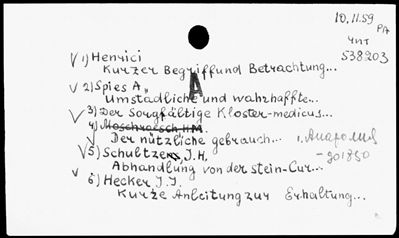 10.11.59
РА
чит
538203
√ 1) Henrici
Kurzer Begriff und Betrachtung...
√ 2) Spies A.
A
Umstadliche und wahzhaffte...
√ 3) Der sorgfältige Kloster-medicus...
4) Moschraisch HM.
√ Der nützliche gebrauch...
√ 5) Schultzens, J.H.
Abhandlung von der stein-Cur...
√ 6) Hecker J.J.
Kurze Anleitung zur Erhaltung...